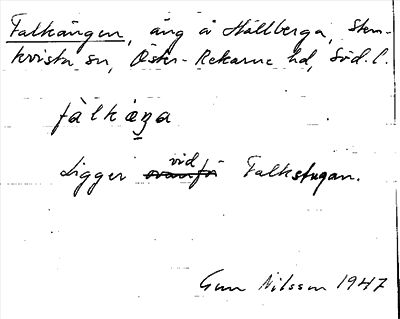 Falkängen, äng å Hällberga, Sten-
kvista sn, Öster-Rekarne hd, Söd. l.
fàlkæŋa
Ligger vid Falkstugan.
Gun Nilsson 1947